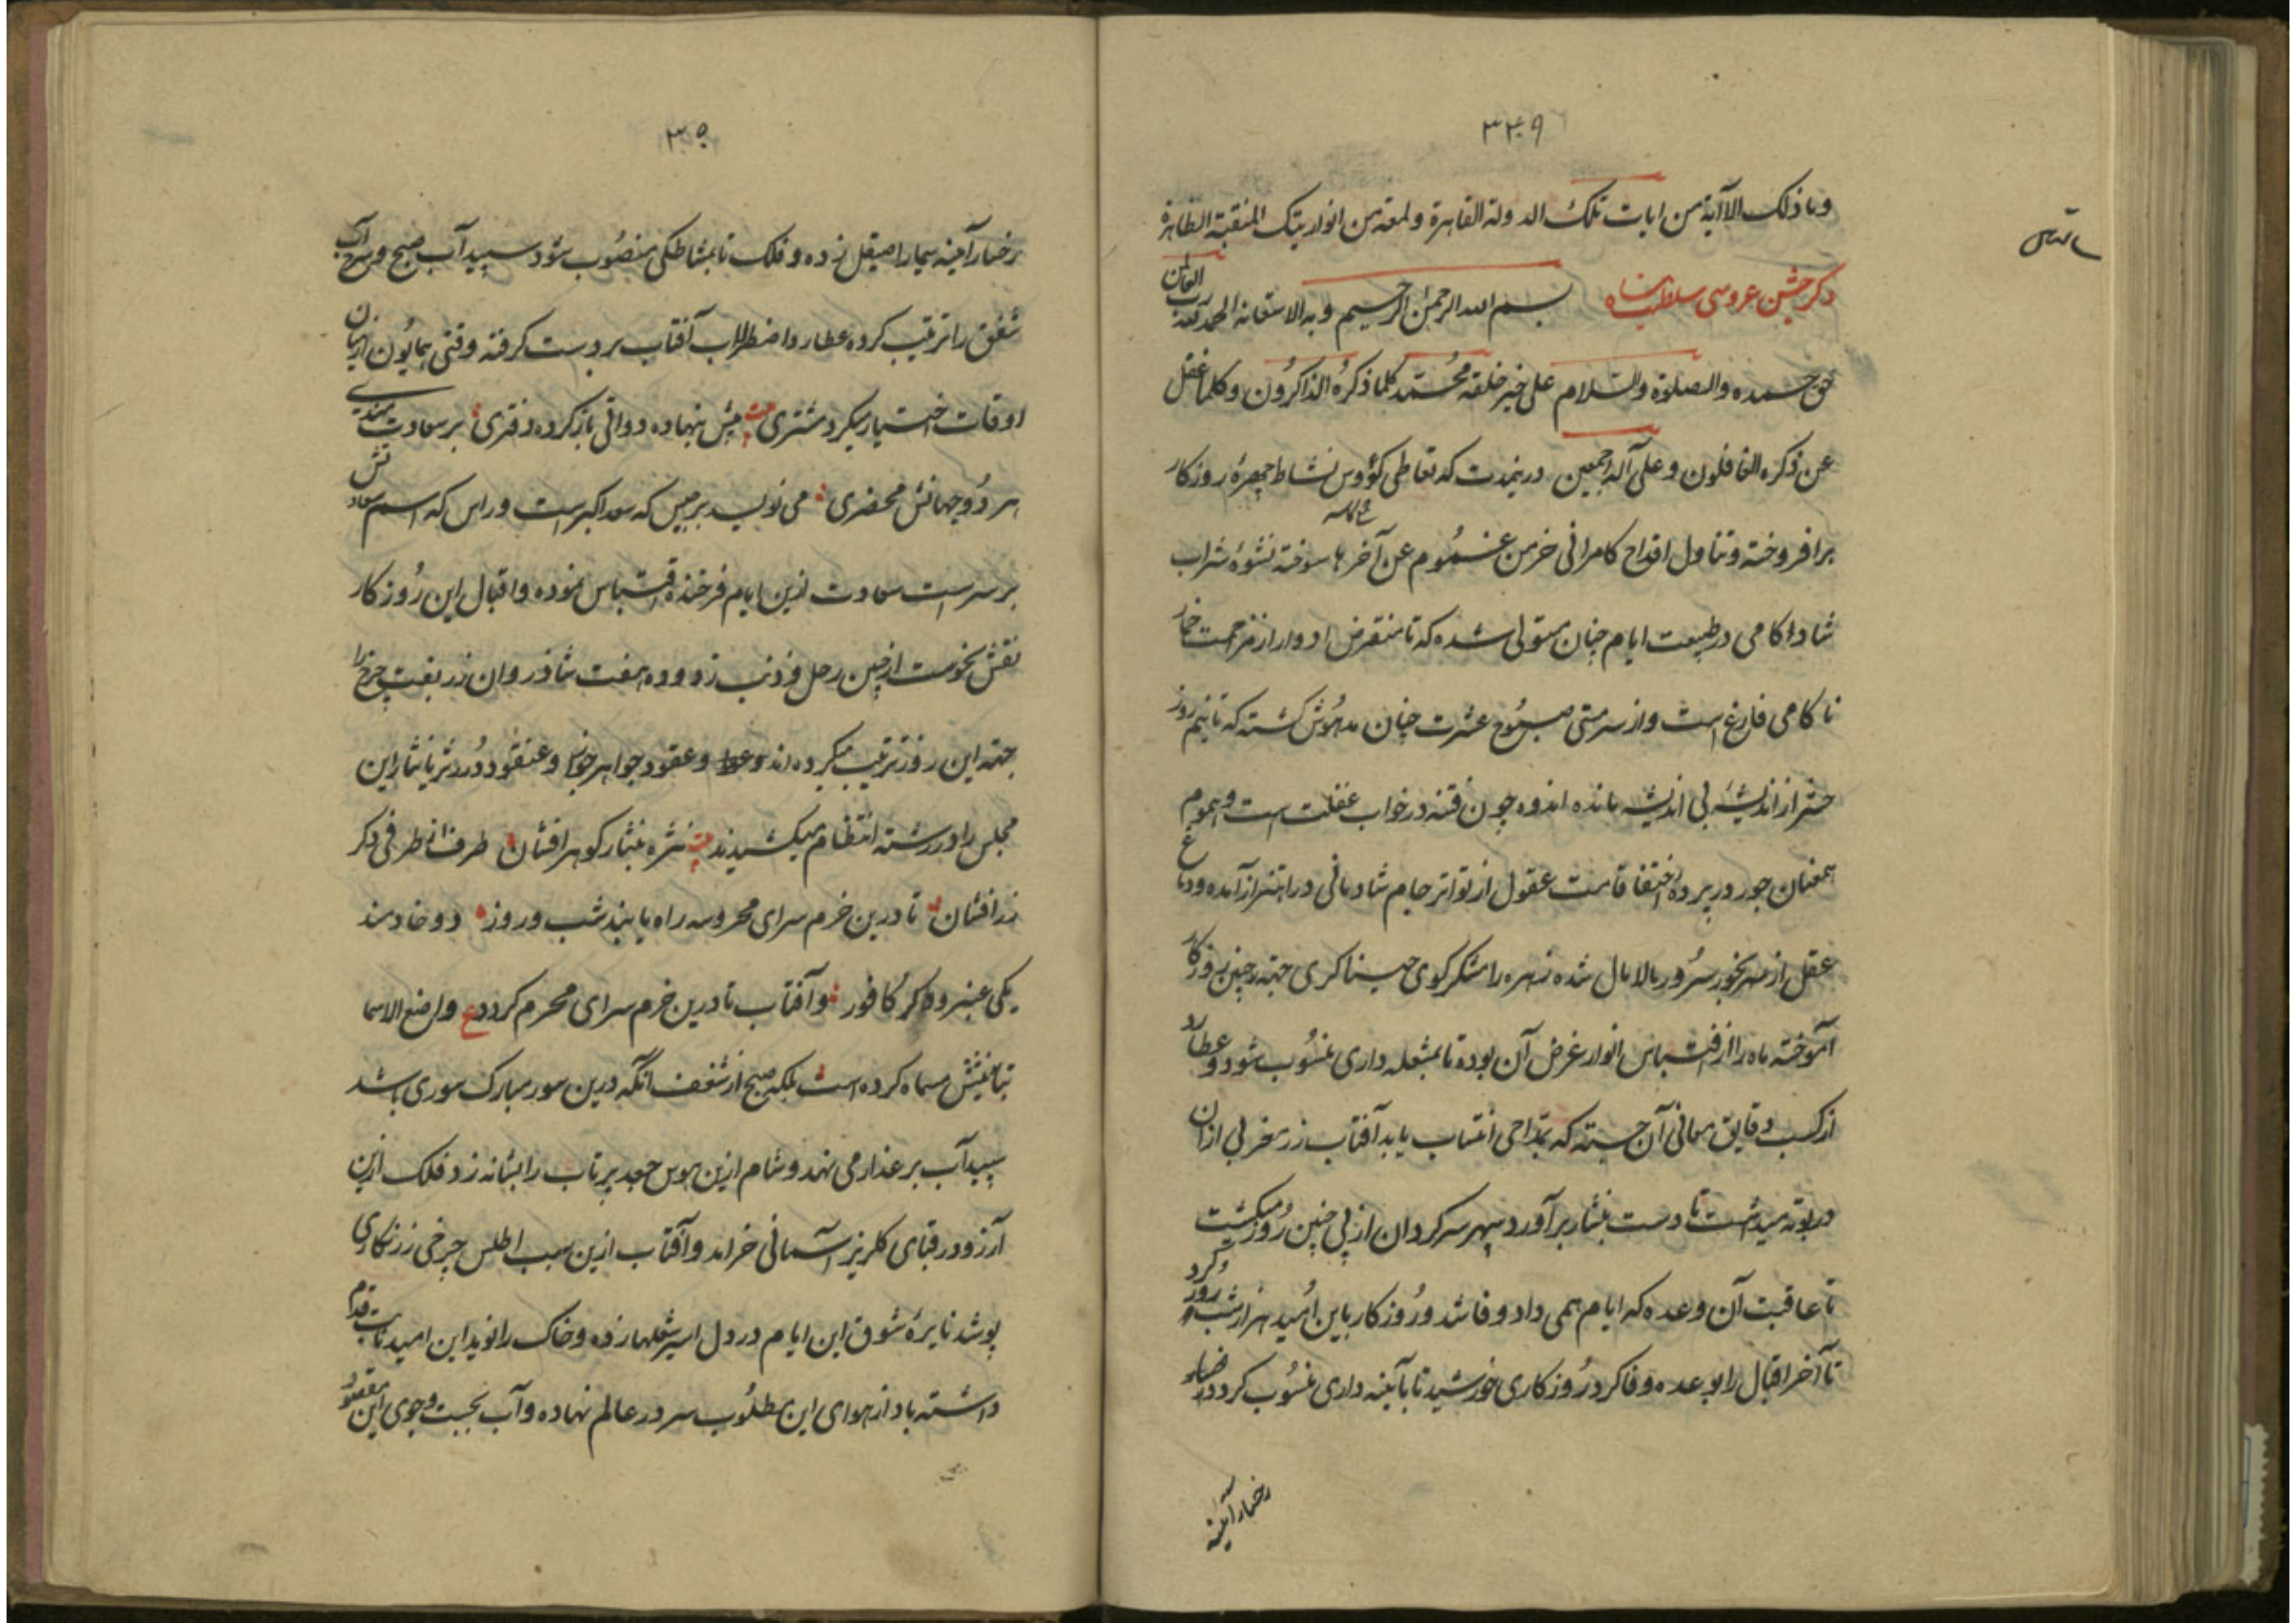 ۳۴۹
وما ذلک الا آیة من ایات تلک الدولة القاهرة ولمعة من انوار تیک المنقبة الظاهرة
ذکر جشن عروسی سلطانشاه بسم الله الرحمن الرحیم وبه الاستعانه الحمد لله رب العالمین
حق حمده والصلوة والسلام علی خیر خلقه محمد کلما ذکره الذاکرون وکلما غفل
عن ذکره الغافلون وعلی آله اجمعین درینمدت که تعاطی کؤوس نشاط چهرهٔ روزکار
برافروخته وتناول اقداح کامرانی خرمن غموم عن آخرها سوخته نشوهٔ شراب
شادکامی در طبیعت ایام چنان مستولی شده که تا منقرض ادوار از مزاحمت خمار
ناکامی فارغ است واز سرمستی صبوح عشرت چنان مدهوش کشته که تا نیم روز
حشر از اندیشهٔ بی اندیشه مانده اندوه چون فتنه در خواب غفلت است وهموم
همعنان جور در پرده اختفا قامت عقول از تواتر جام شادمانی در اهتزاز آمده ودماغ
عقل از بخور سرور مالامال شده زهره را شکر کوی خنیاکری جهة چنین روزکار
آموخته ماه را از اقتباس انوار غرض آن بوده تا بمشعله داری منسوب شود وعطارد
از کسب دقایق معانی آن جسته که بمداحی انتساب یابد آفتاب زر مغربی ازان
در بوته میداشت تا دست بنثار برآورد سپهر سرکردان از پی چنین روز میکشت
تا عاقبت آن وعده که ایام همی داد وفا شد وروزکار باین امید هزار شب وروز کرد
تا آخر اقبال را بوعده وفا کرد روزکاری خورشید تا بآینه داری منسوب کردد رخسار
رخسار آینه
۳۵۰
رخسار آینه سیما را صیقل زده وفلک تا بمشاطکی منصوب شود سپید آب صبح وسرخ آب
شفق را ترتیب کرده عطارد اصطرلاب آفتاب بر دست کرفته وقتی همایون از میان
اوقات اختیار میکرد مشتری پیش بنهاده دواتی باز کرده دفتری بر سعادتمندی
هر دو جهانش محضری می نویسد برجیس که سعد اکبر است وراس که اسم سعادتش
بر سر است سعادت ازین ایام فرخنده اقتباس نموده واقبال این روزکار
نقش نحوست از جبین زحل وذنب زدوده هفت شادروان زربفت چرخ را
جهة این روز ترتیب میکرده اند وعقود جواهر جوزا وعنقود درر ثریا نثار این
مجلس را در رشته انتظام میکشیدند نثره بنثار کوهر افشان طرف از طرفی دکر
زر افشان تا درین خرم سرای محروسه راه یابند شب وروز دو خادمند
یکی عنبر ودکر کافور وآفتاب تا درین خرم سرای محرم کردد واضع الاسما
بتانیثش مسماه کرده است بلکه صبح از شغف آنکه درین سور مبارک سوری باشد
سپید آب بر عذار می نهد وشام ازین هوس جعد پرتاب را بشانه زد فلک ازین
آرزو در قبای کلریز آسمانی خرامد وآفتاب ازین سبب اطلس چرخی زرنکاری
پوشد نایرهٔ شوق این ایام در دل اثیر شعلها زده وخاک را نوید این امید ثابت قدم
داشته باد از هوای این مطلوب سر در عالم نهاده وآب بجست وجوی این مقصود